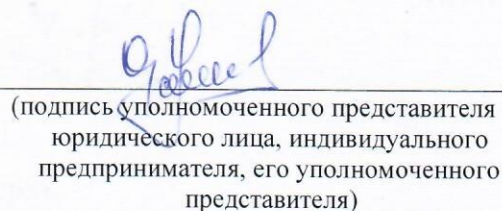 (подпись уполномоченного представителя
юридического лица, индивидуального
предпринимателя, его уполномоченного
представителя)